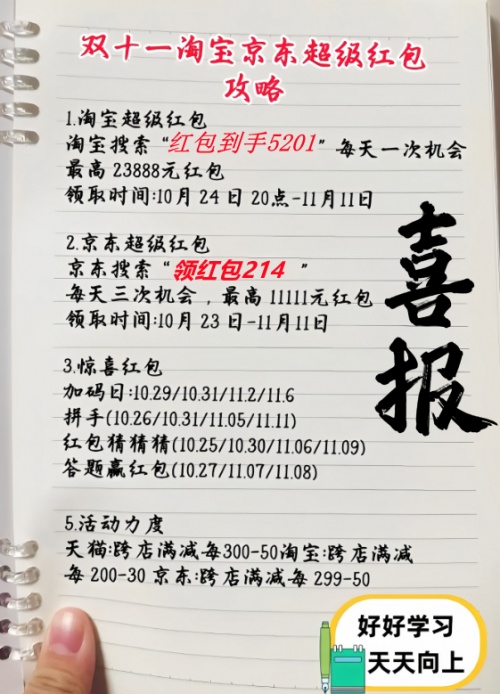 双十一淘宝京东超级红包
攻略
1.淘宝超级红包
淘宝搜索“红包到手5201”每天一次机会
最高 23888元红包
领取时间:10月 24 日 20点-11月11日
2.京东超级红包
京东搜索“领红包214 ”
每天三次机会，最高 11111元红包
领取时间:10月 23 日-11月11日
喜报
3.惊喜红包
加码日:10.29/10.31/11.2/11.6
拼手(10.26/10.31/11.05/11.11)
红包猜猜猜(10.25/10.30/11.06/11.09)
答题赢红包(10.27/11.07/11.08)
5.活动力度
天猫:跨店满减每300-50淘宝:跨店满减
每 200-30 京东:跨店满减每 299-50
好好学习
天天向上